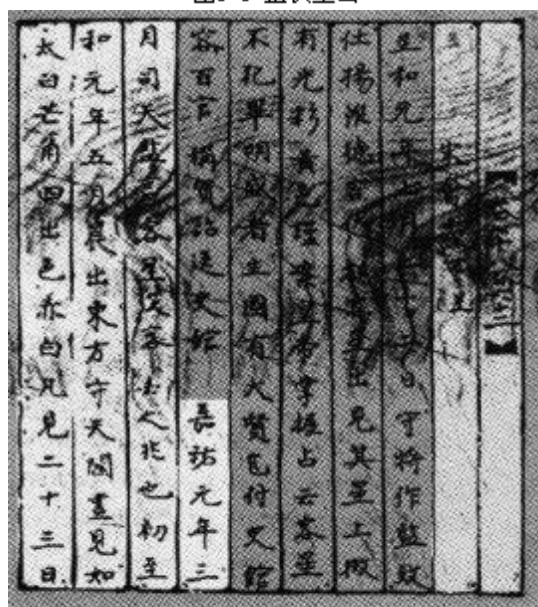 至和元年七月二十二日守將作監致
仕楊維德言伏睹客星出見其星上微
有光彩黃色謹案黃帝掌握占云客星
不犯畢明盛者主國有大賢乞付史館
容百官稱賀詔送史館 嘉祐元年三
月司天監言客星沒客去之兆也初至
和元年五月晨出東方守天關晝見如
太白芒角四出色赤白凡見二十三日